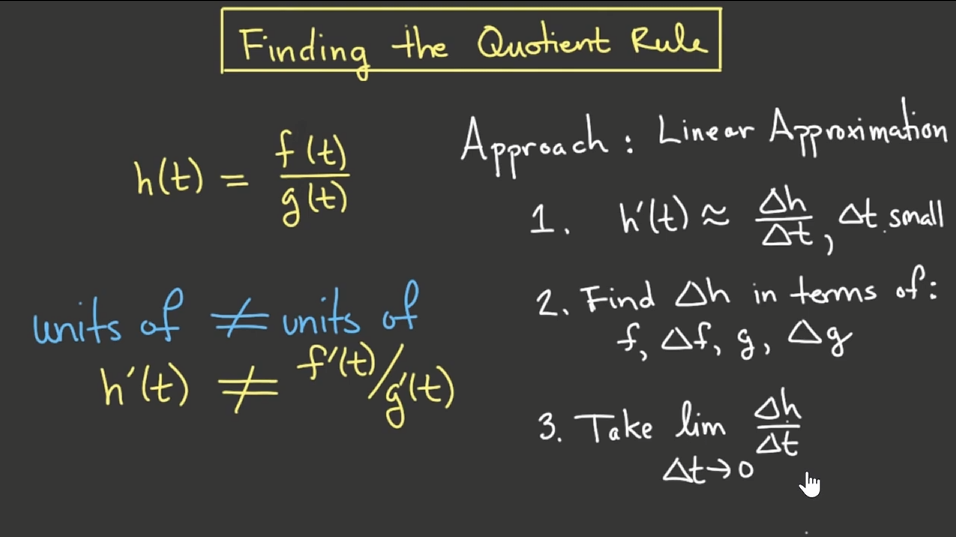 Finding the Quotient Rule
h(t) = f(t)/g(t)
units of ≠ units of
h'(t) ≠ f'(t)/g'(t)
Approach: Linear Approximation
1. h'(t) ≈ Δh/Δt, Δt small
2. Find Δh in terms of:
f, Δf, g, Δg
3. Take lim Δh/Δt
Δt→0